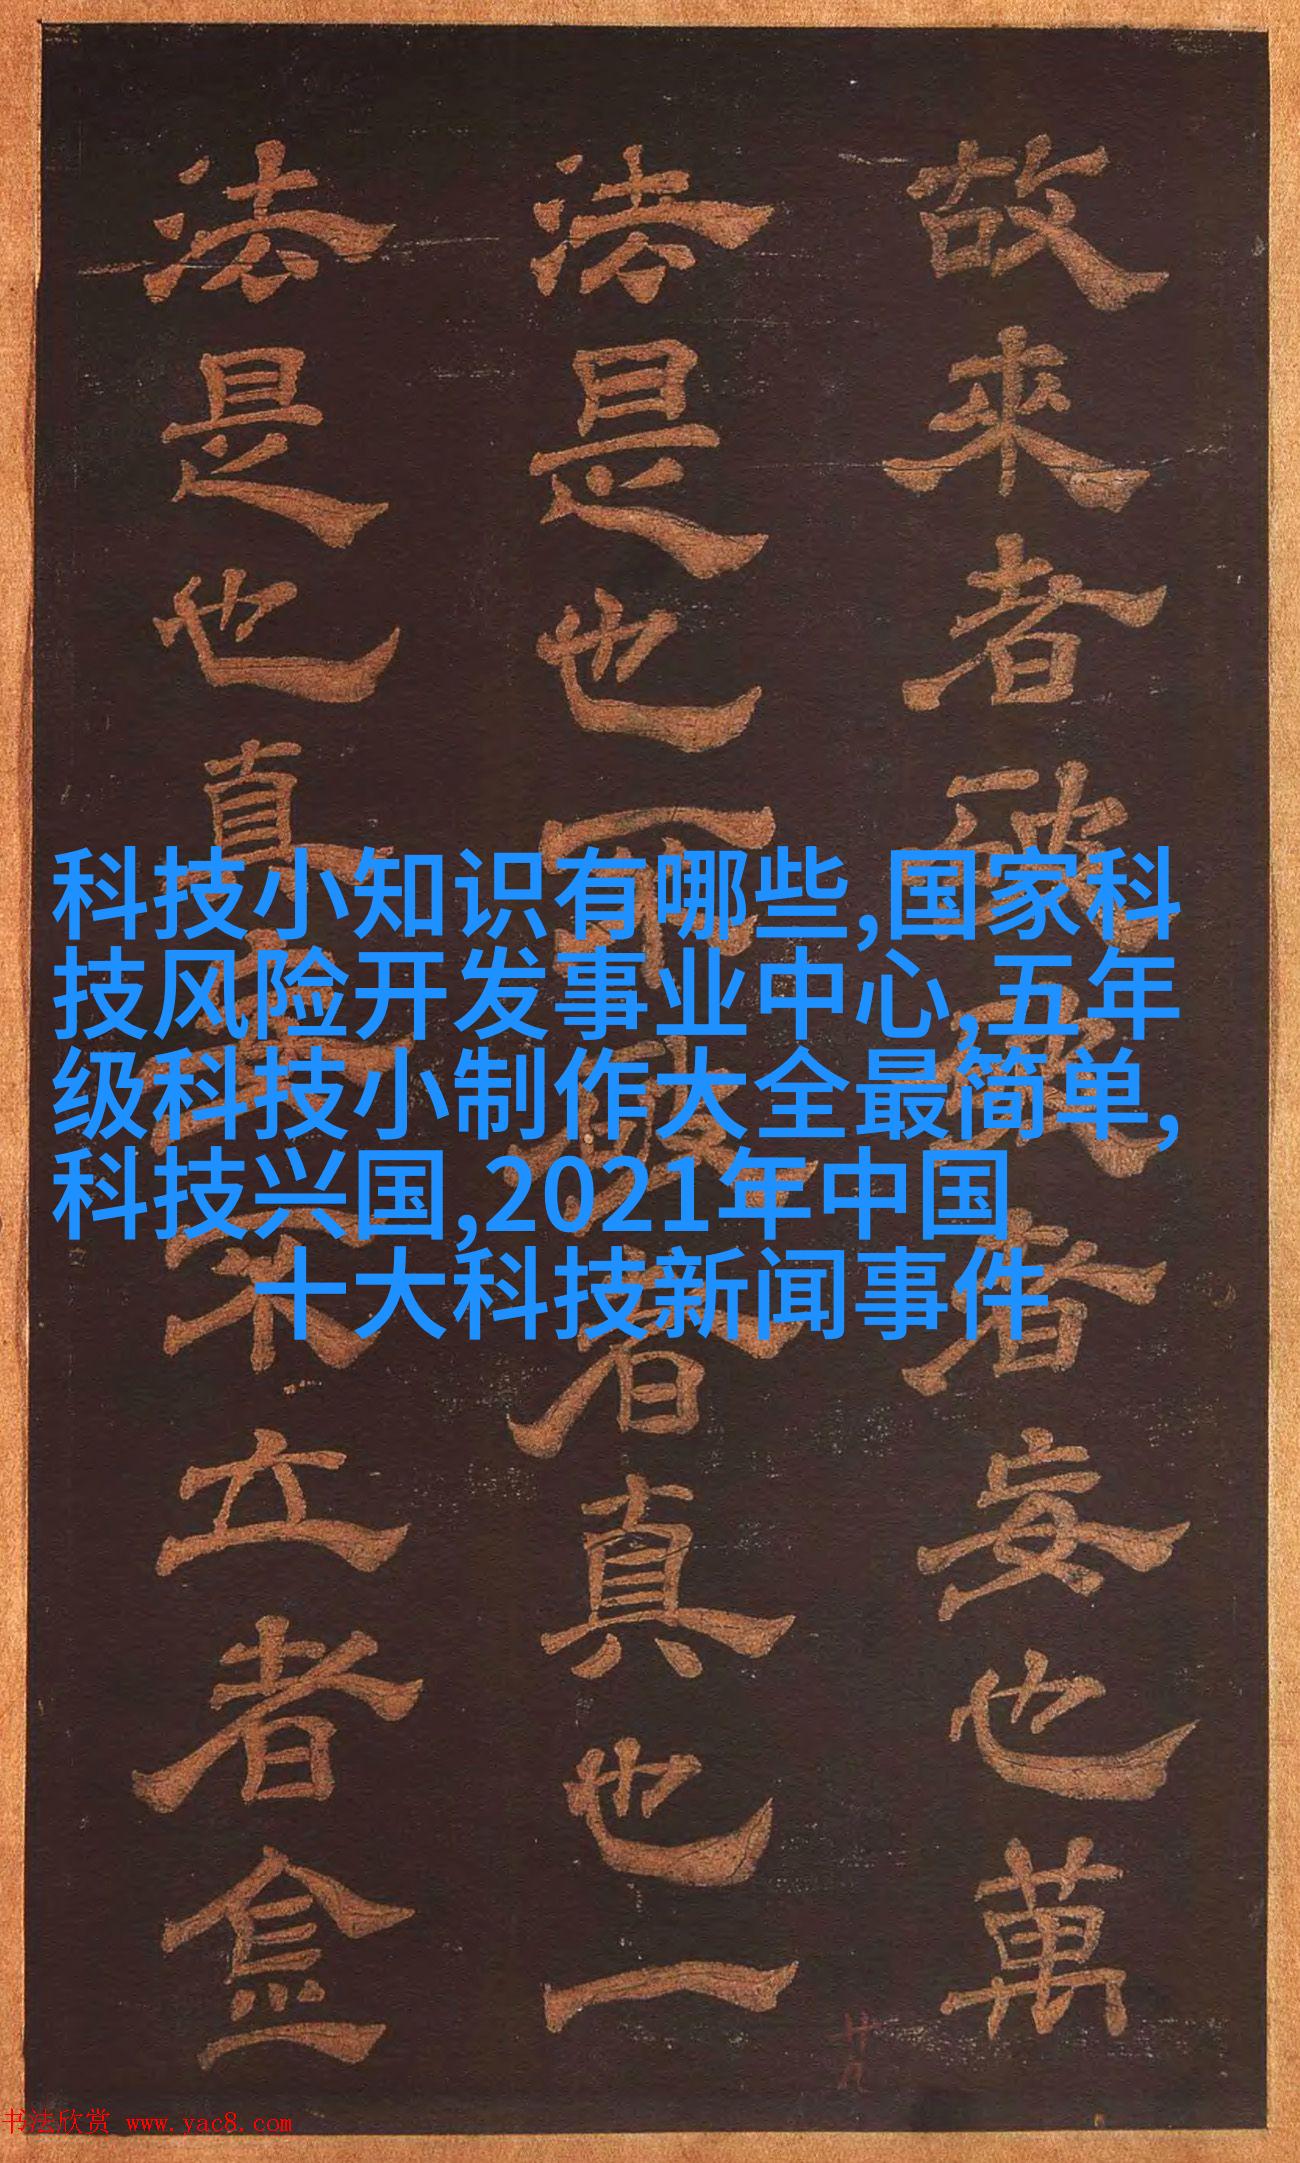 科技小知识有哪些,国家科
技风险开发事业中心,五年
级科技小制作大全最简单,
科技兴国,2021年中国
十大科技新闻事件
故來者破者妄也萬
法是也不破者真也一
法是也真不立者
廿九
书法欣赏 www.yac8.com